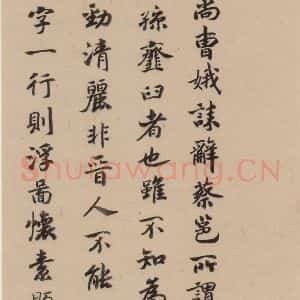 尚曹娥誄辭蔡邕所謂
孫虀臼者也雖不知為
勁清麗非晉人不能
字一行則浮圖懷素題
Shufawang.CN